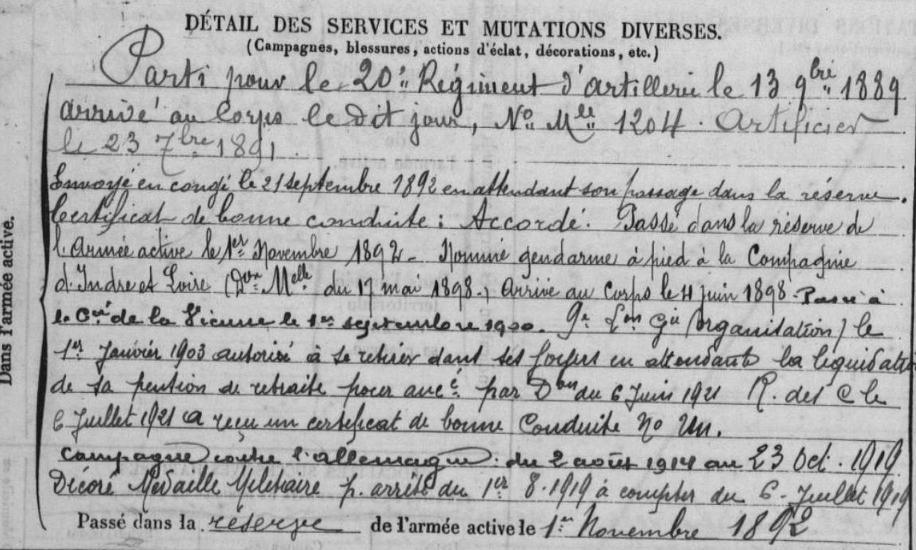 DÉTAIL DES SERVICES ET MUTATIONS DIVERSES.
(Campagnes, blessures, actions d'éclat, décorations, etc.)
Parti pour le 20e Régiment d'artillerie le 13 9bre 1889
arrivé au corps le dit jour, No Mle 1204. Artificier
le 23 7bre 1891
Envoyé en congé le 21 septembre 1892 en attendant son passage dans la réserve.
Certificat de bonne conduite : Accordé. Passé dans la réserve de
l'Armée active le 1er Novembre 1892 - Nommé gendarme à pied à la Compagnie
d'Indre et Loire (Don Melle du 17 mai 1898.) Arrivé au Corps le 11 juin 1898. Passé à
la Cie de la Vienne le 1er septembre 1900. 9e Lon Gie (organisation) le
1er Janvier 1903 autorisé à se retirer dans ses foyers en attendant la liquidation
de sa pension de retraite pour anc é par Don du 6 Juin 1921 R. des C le
6 Juillet 1921 a reçu un certificat de bonne Conduite No Un.
Campagne contre l'allemagne : du 2 août 1914 au 23 Oct. 1919
Décoré Médaille Militaire p. arrêté du 1er 8.1919 à compter du 6 Juillet 1919
Passé dans la réserve de l'armée active le 1er Novembre 1892
Dans l'armée active.